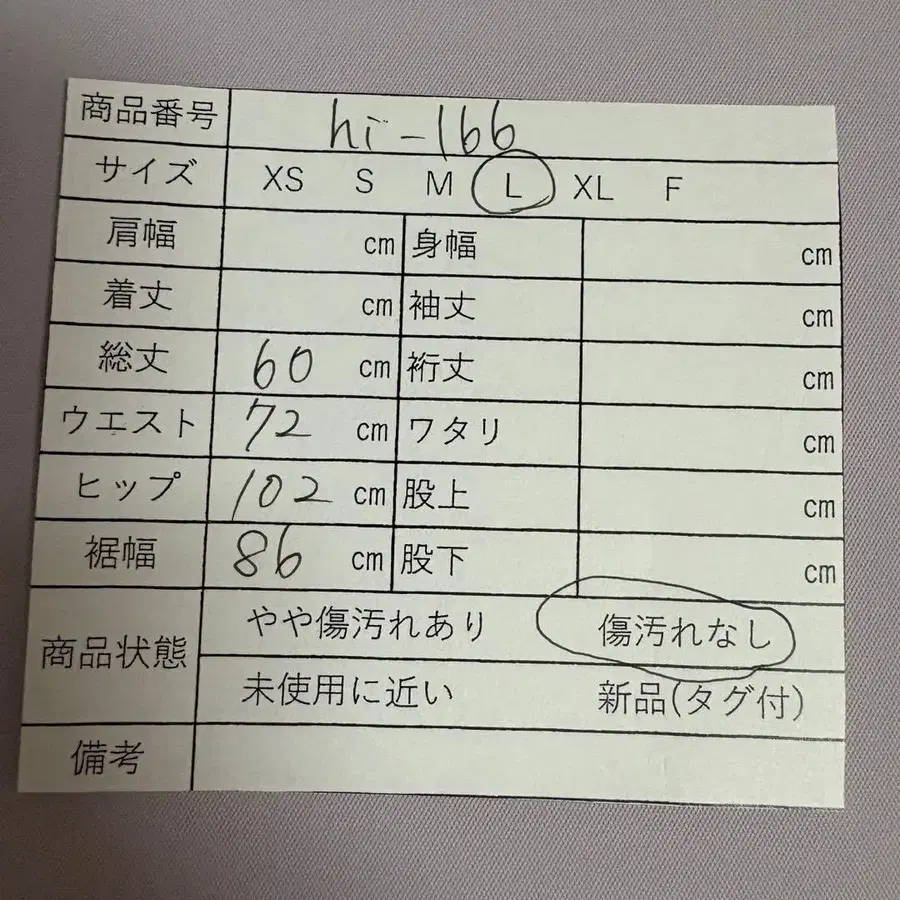 商品番号 hi-166
サイズ XS S M L XL F
肩幅 cm 身幅 cm
着丈 cm 袖丈 cm
総丈 60 cm 裄丈 cm
ウエスト 72 cm ワタリ cm
ヒップ 102 cm 股上 cm
裾幅 86 cm 股下 cm
商品状態 やや傷汚れあり 傷汚れなし
未使用に近い 新品(タグ付)
備考